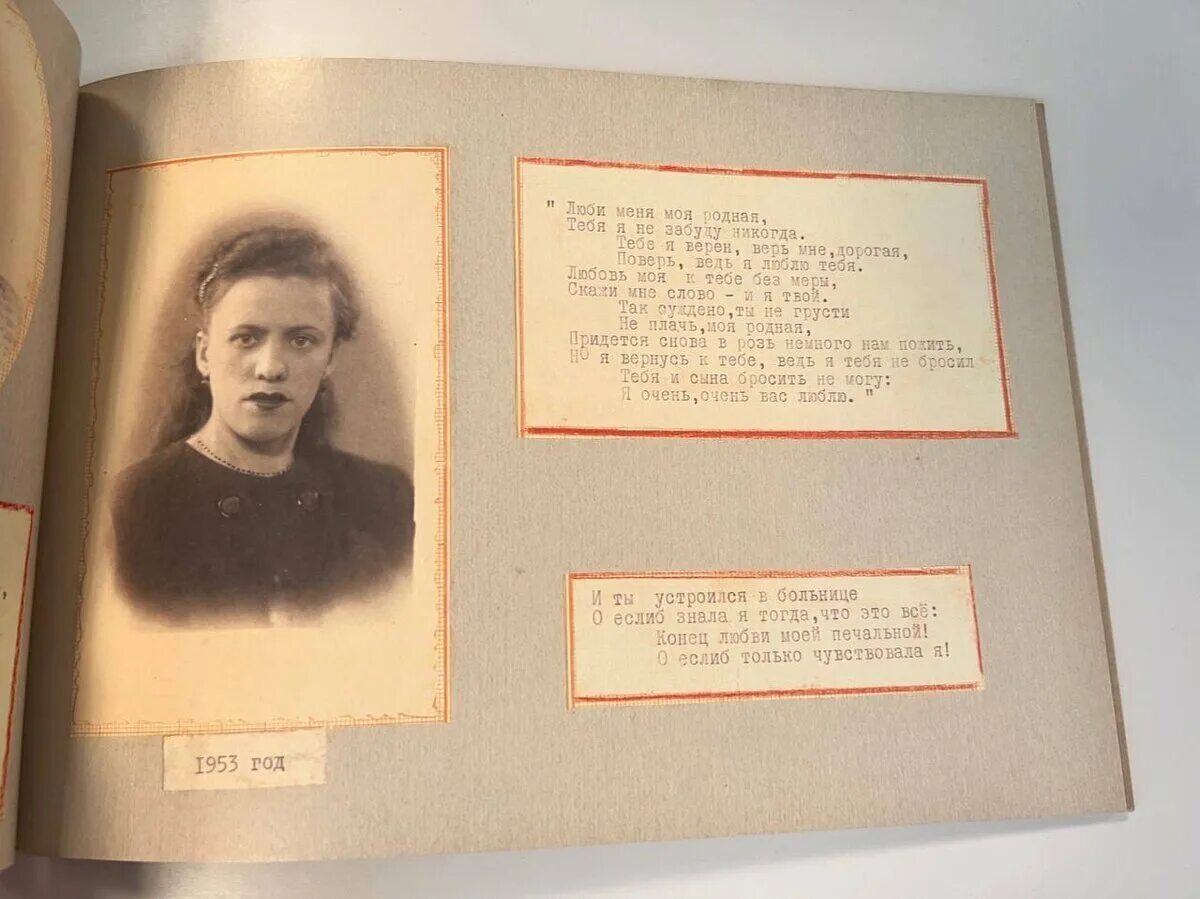 " Люби меня моя родная,
Тебя я не забуду никогда.
Тебе я верен, верь мне,дорогая,
Поверь, ведь я люблю тебя.
Любовь моя к тебе без меры,
Скажи мне слово - и я твой.
Так суждено,ты не грусти
Не плачь,моя родная,
Придется снова в розь немного нам пожить,
Но я вернусь к тебе, ведь я тебя не бросил
Тебя и сына бросить не могу:
Я очень,очень вас люблю. "
И ты устроился в больнице
О еслиб знала я тогда,что это всё:
Конец любви моей печальной!
О еслиб только чувствовала я!
1953 год
,